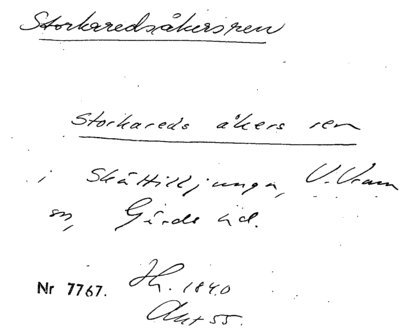 Storkaredsåkersren
Storkareds åkers ren
i Skättilljunga, V. Vram
sn, Gärds hd.
Nr 7767. Hh. 1840
Akt 55.